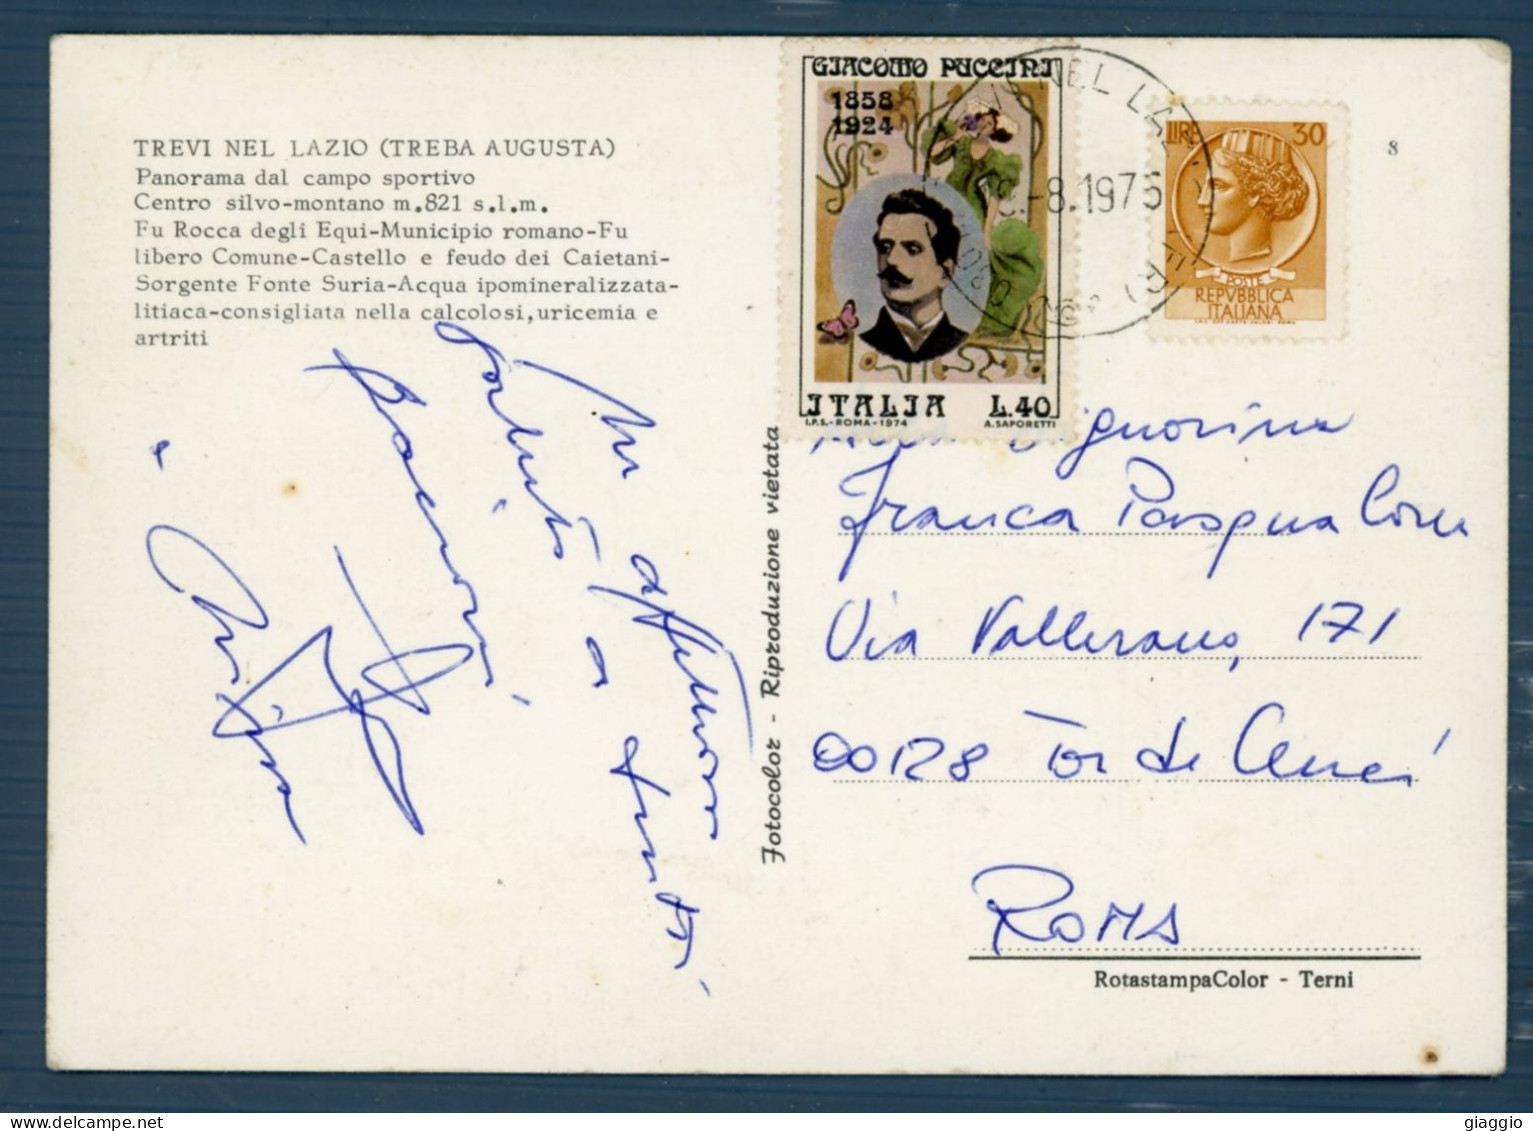 TREVI NEL LAZIO (TREBA AUGUSTA)
Panorama dal campo sportivo
Centro silvo-montano m.821 s.l.m.
Fu Rocca degli Equi-Municipio romano-Fu
libero Comune-Castello e feudo dei Caietani-
Sorgente Fonte Suria-Acqua ipomineralizzata-
litiaca-consigliata nella calcolosi, uricemia e
artriti
Un affettuoso
saluto a
Bacioni
Fotocolor - Riproduzione vietata
GIACOMO PUCCINI
1858
1924
ITALIA L.40
I.P.S.-ROMA-1974 A.SAPORETTI
NEL LAZ
-8.1975
LIRE 30
POSTE
REPVBBLICA
ITALIANA
8
Signorina
Franca Pasqua
Via Vallerano, 171
00128 Tor de Cenci
ROMA
RotastampaColor - Terni
giaggio